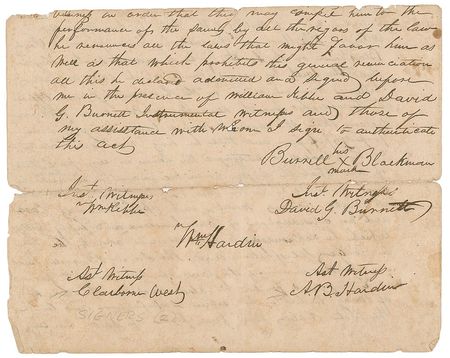 in order that they may compel him to the
performance of the same by all the rigors of the law
he renounces all the laws that might favor him as
well as that which prohibits this general renunciation
all this he declared admitted and signed before
me in the presence of William Kibbe and David
G. Burnett Instrumental Witnesses and those of
my assistance with whom I sign to authenticate
this act
Burrell his x mark Blackman
Inst Witness
Wm Kibbe
Inst Witness
David G. Burnett
Wm Hardin
Ast Witness
Claiborne West
Ast Witness
A. B. Hardin
SIGNERS